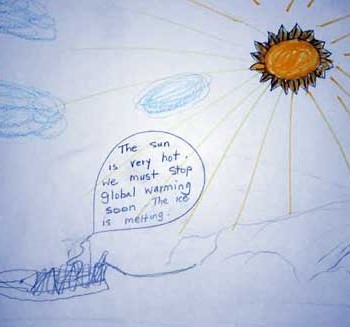 The sun
is very hot.
we must stop
global warming
soon. The ice
is melting.